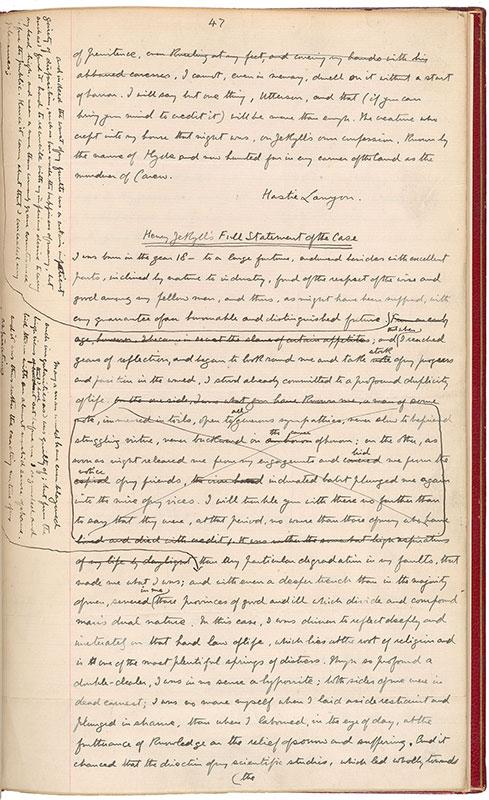 47
of penitence, even kneeling at my feet, and covering my hands with his
abhorred caresses, I cannot, even in memory, dwell on it without a start
of horror. I will say but one thing, Utterson, and that (if you can
bring your mind to credit it) will be more than enough. The creature who
crept into my house that night was, on Jekyll's own confession, known by
the name of Hyde and now hunted for in every corner of the land as the
murderer of Carew.
Hastie Lanyon.
Henry Jekyll's Full Statement of the Case
I was born in the year 18— to a large fortune, endowed besides with excellent
parts, inclined by nature to industry, fond of the respect of the wise and
good among my fellow men, and thus, as might have been supposed, with
every guarantee of an honourable and distinguished future. From an early
age, however, I became in secret the slave of certain appetites; and when I reached
years of reflection, and began to look round me and take stock of my progress
and position in the world, I stood already committed to a profound duplicity
of life.
And indeed the worst of my faults was a certain impatient
gaiety of disposition, such as has made the happiness of many, but
such as I found it hard to reconcile with my imperious desire to carry
my head high, and wear a more than commonly grave countenance
before the public. Hence it came about that I concealed my
pleasures;
Many a man would have even blazoned
such irregularities as I was guilty of; but from the
high views that I had set before me, I regarded and
hid them with an almost morbid sense of shame.
and it was thus rather the exacting nature of my
aspirations
for the outside, I was what you have known me, a man of some
note, immersed in toils, open to all generous sympathies, never slow to befriend
struggling virtue, never backward in the cause of honour; on the other, as
soon as night released me from my engagements and hid me from the
notice of my friends, the iron hand of indurated habit plunged me again
into the mire of my vices. I will trouble you with these no further than
to say that they were, at that period, no worse than those of many who have
lived and died with credit. It was rather the somewhat high aspiration
of my life by daylight
than any particular degradation in my faults, that
made me what I was; and with even a deeper trench than in the majority
of men, severed in me those provinces of good and ill which divide and compound
man's dual nature. In this case, I was driven to reflect deeply and
inveterately on that hard law of life, which lies at the root of religion and
is one of the most plentiful springs of distress. Though so profound a
double-dealer, I was in no sense a hypocrite; both sides of me were in
dead earnest; I was no more myself when I laid aside restraint and
plunged in shame, than when I laboured, in the eye of day, at the
furtherance of knowledge or the relief of sorrow and suffering. And it
chanced that the direction of my scientific studies, which led wholly towards
(the